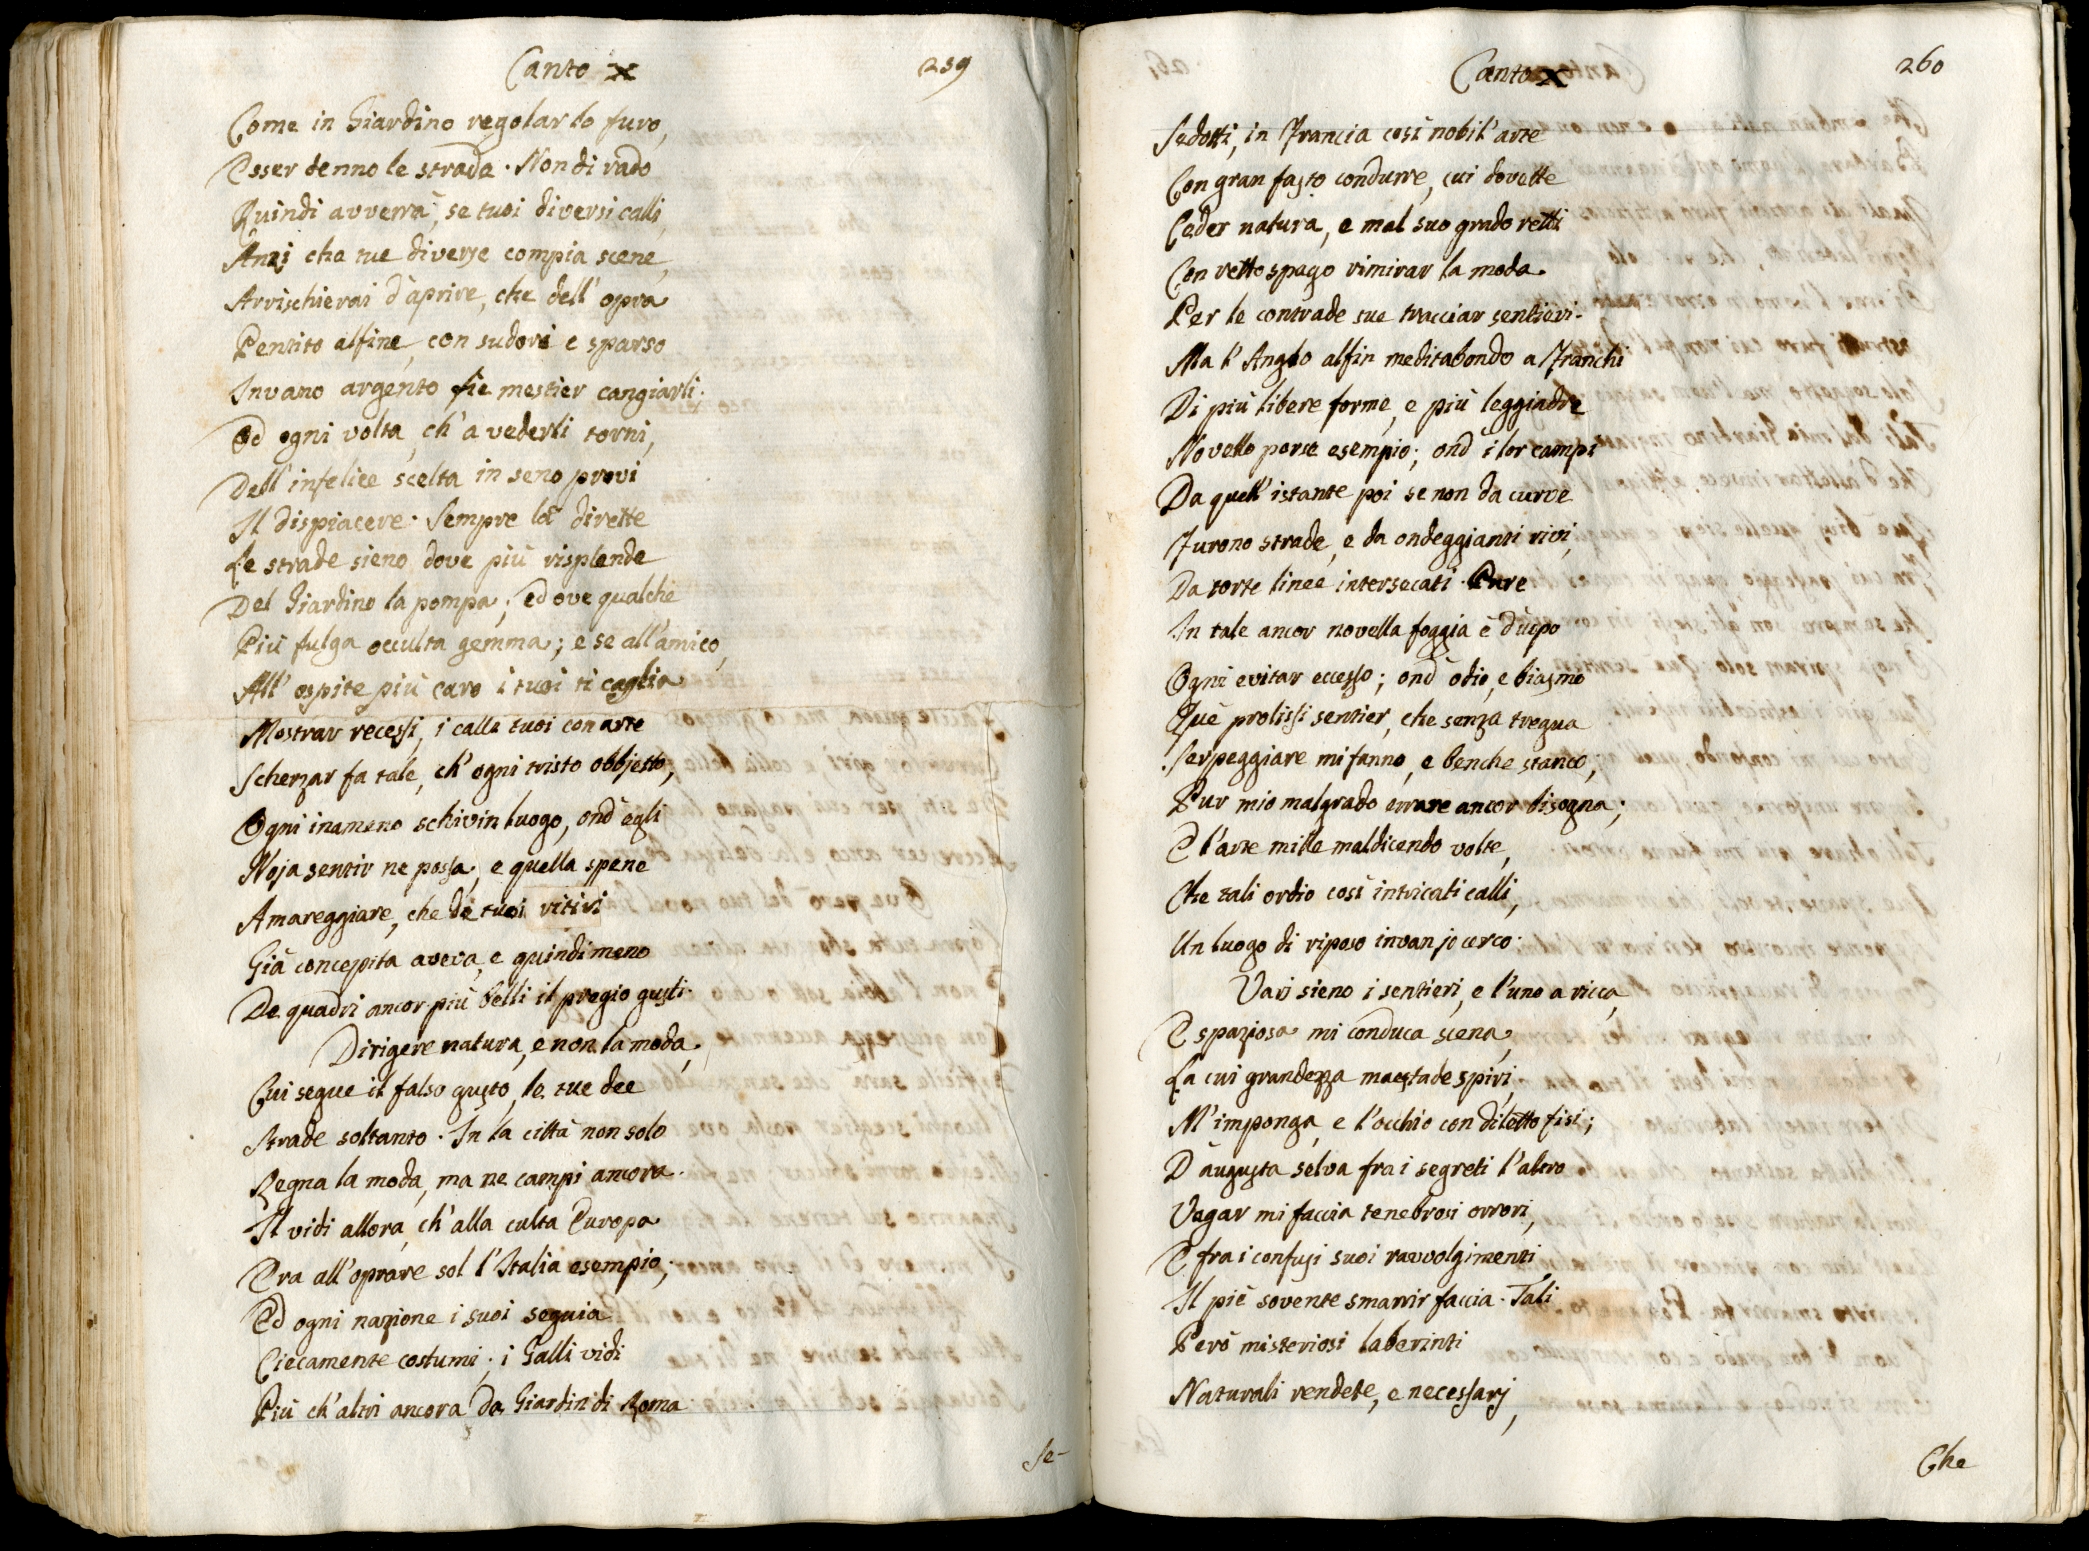 Canto X
259
Come in Giardino regolar lo furo,
Esser denno le strade. Non di rado
Quindi avverrà, se tuoi diversi calli,
Anzi che tue diverse compia scene,
Arrischierai d'aprire, che dell'opra
Pentito alfine, con sudori e sparso
Invano argento fie mestier cangiarli.
Od ogni volta, ch'a vederli torni,
Dell'infelice scelta in seno provi
Il dispiacere. Sempre là dirette
Le strade sieno, dove più risplende
Del Giardino la pompa; ed ove qualche
Più fulga occulta gemma; e se all'amico,
All'ospite più caro i tuoi ti caglia
Mostrar recessi, i calli tuoi con arte
Scherzar fa tale, ch'ogni tristo obbjetto,
Ogni inameno schivin luogo, ond'egli
Noja sentir ne possa, e quella spene
Amareggiare, che de tuoi ritiri
Già concepita aveva, e quindi meno
De quadri ancor più belli il pregio gusti.
Dirigere natura, e non la moda,
Cui segue il falso gusto, le tue dee
Strade soltanto. In la città non solo
Regna la moda, ma ne campi ancora.
Il vidi allora, ch'alla culta Europa
Era all'oprare sol l'Italia esempio,
Ed ogni nazione i suoi seguia
Ciecamente costumi; i Galli vidi
Più ch'altri ancora da Giardin di Roma
Se-
Canto X
260
Sedotti, in Francia così nobil'arte
Con gran fasto condurre, cui dovette
Ceder natura, e mal suo grado retti
Con retto spago rimirar la moda
Per le contrade sue tracciar sentieri.
Ma l'Anglo alfin meditabondo a Franchi
Di più libere forme, e più leggiadre
Novello porse esempio; ond'i lor campi
Da quell'istante poi se non da curve
Furono strade, e da ondeggianti rivi,
Da torte linee intersecati. Pure
In tale ancor novella foggia è d'uopo
Ogni evitar eccesso; ond'odio, e biasmo
Que prolissi sentier, che senza tregua
Serpeggiare mi fanno, e benche stanco,
Pur mio malgrado errare ancor bisogna;
E l'arte mille maldicendo volte,
Che tali ordio così intricati calli,
Un luogo di riposo invan jo cerco.
Varj sieno i sentieri, e l'uno a ricca,
E spaziosa mi conduca scena,
La cui grandezza maestade spiri,
M'imponga, e l'occhio con diletto fisi;
D'augusta selva fra i segreti l'altro
Vagar mi faccia tenebrosi orrori,
E fra i confusi suoi ravvolgimenti
Il piè sovente smarrir faccia. Tali
Però misteriosi laberinti
Naturali rendete, e necessarj,
Che